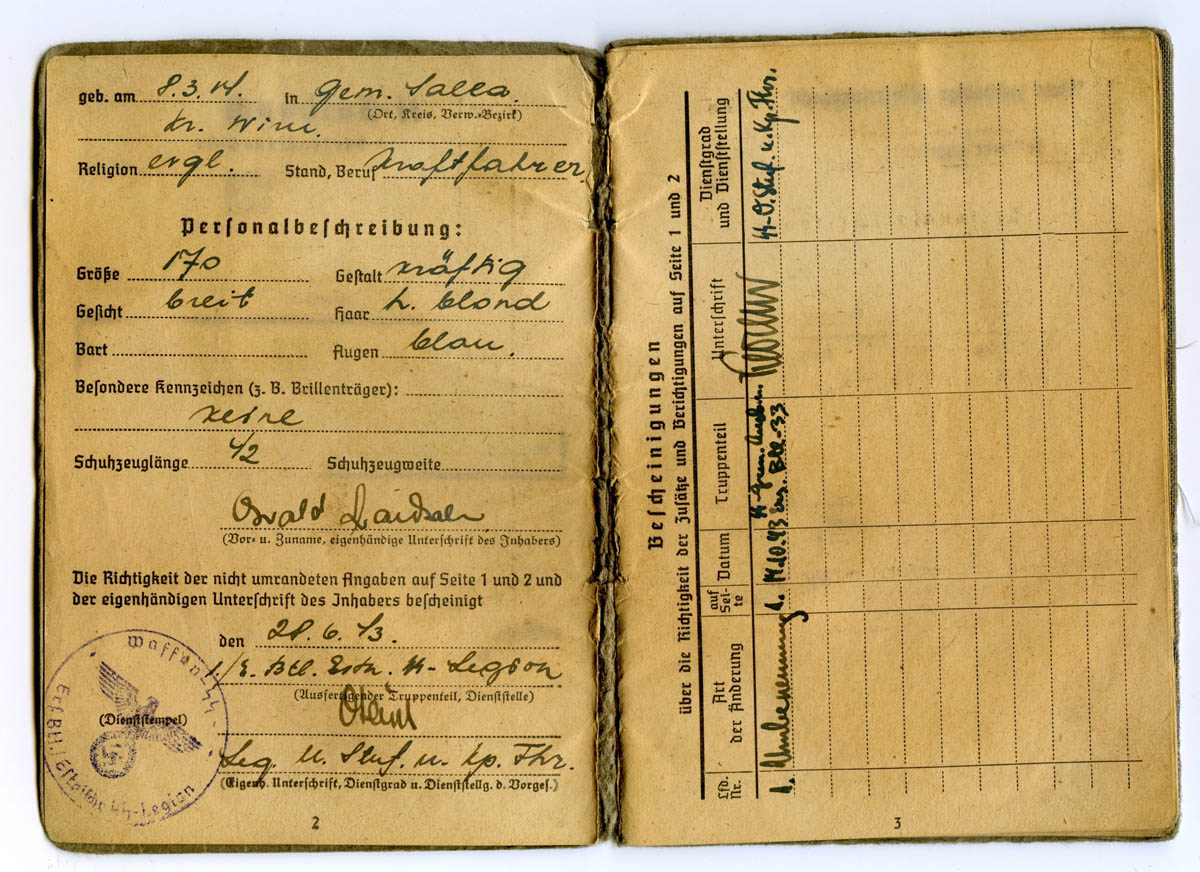 geb. am 8.3.14. in Gem. Salla.
(Ort, Kreis, Verw.-Bezirk)
Kr. Wiru.
Religion evgl. Stand, Beruf Kraftfahrer
Personalbeschreibung:
Größe 170 Gestalt kräftig
Gesicht breit Haar h. blond
Bart Augen blau.
Besondere Kennzeichen (z. B. Brillenträger):
keine
Schuhzeuglänge 42 Schuhzeugweite
Osvald
(Vor- u. Zuname, eigenhändige Unterschrift des Inhabers)
Die Richtigkeit der nicht umrandeten Angaben auf Seite 1 und 2 und
der eigenhändigen Unterschrift des Inhabers bescheinigt
den 28.6.43.
1/E. Btl. Estn. SS-Legion
(Ausfertigender Truppenteil, Dienststelle)
(Dienststempel)
Leg. U. Stuf. u. Kp. Fhr.
(Eigenh. Unterschrift, Dienstgrad u. Dienststellg. d. Vorges.)
Waffen SS
SS-Legion
2
Bescheinigungen
über die Richtigkeit der Zusätze und Berichtigungen auf Seite 1 und 2
Lfd. Nr.
Art der Änderung
auf Seite
Datum
Truppenteil
Unterschrift
Dienstgrad und Dienststellung
1. Umbenennung 1. 14.10.43 SS-Gren. Ausb. u. Ers. Btl.-33 SS-O.Stuf. u. Kp. Fhr.
3